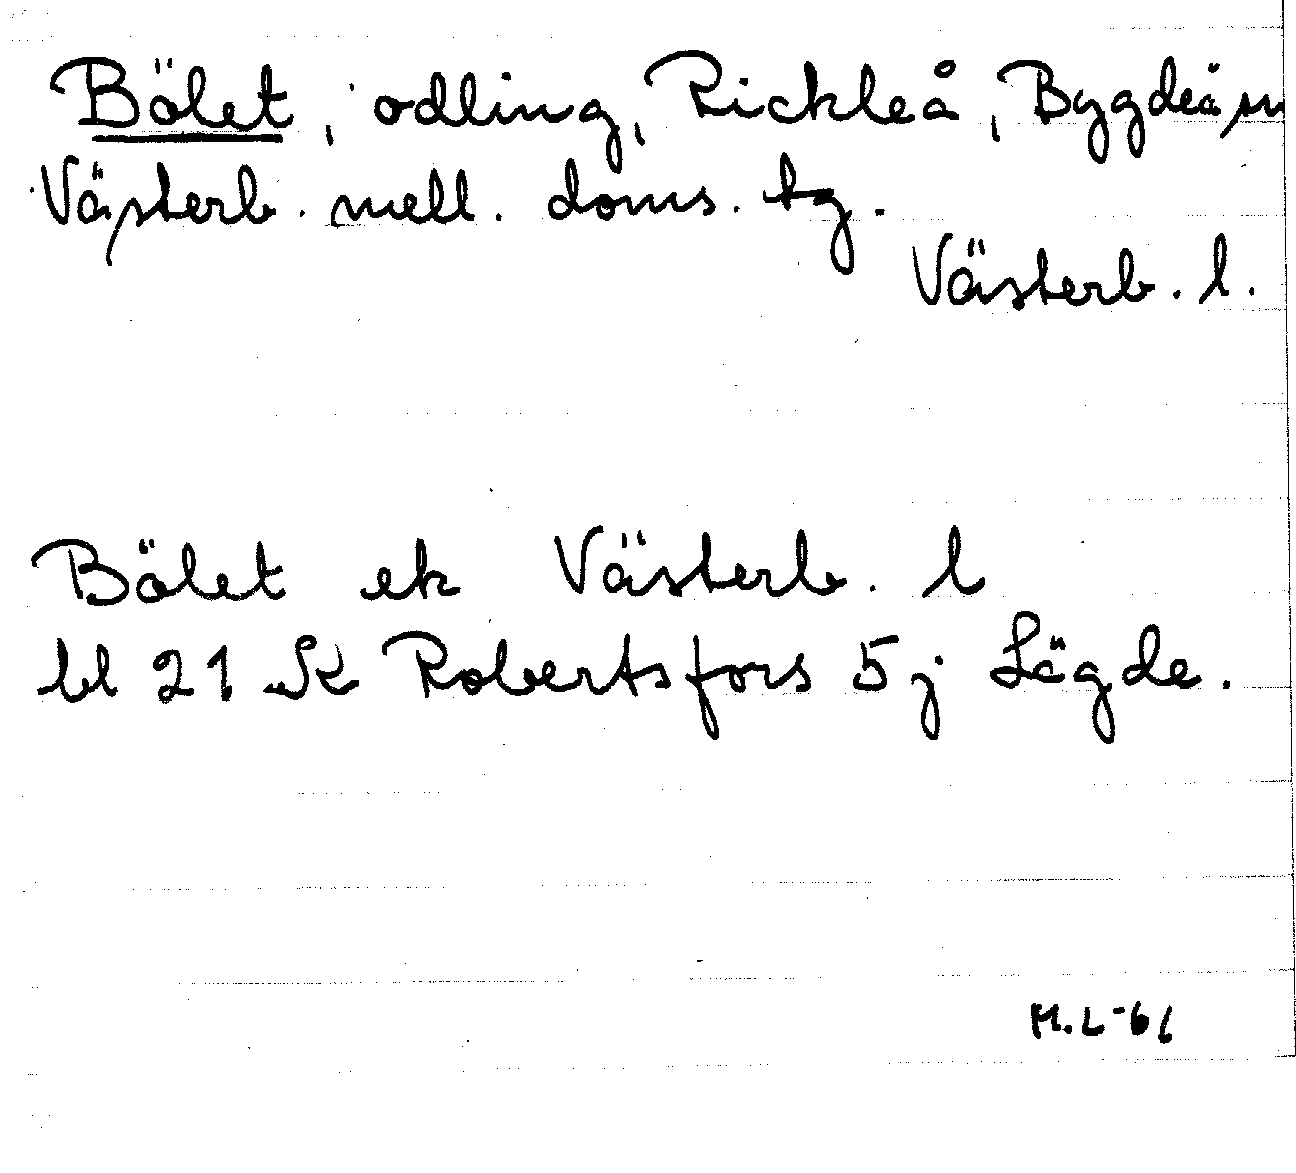 Bölet, odling, Rickleå, Bygdeå sn
Västerb. mell. doms. tg.
Västerb. l.
Bölet ek Västerb. l
bl 21 SK Robertsfors 5j Lägde.
M.L-66